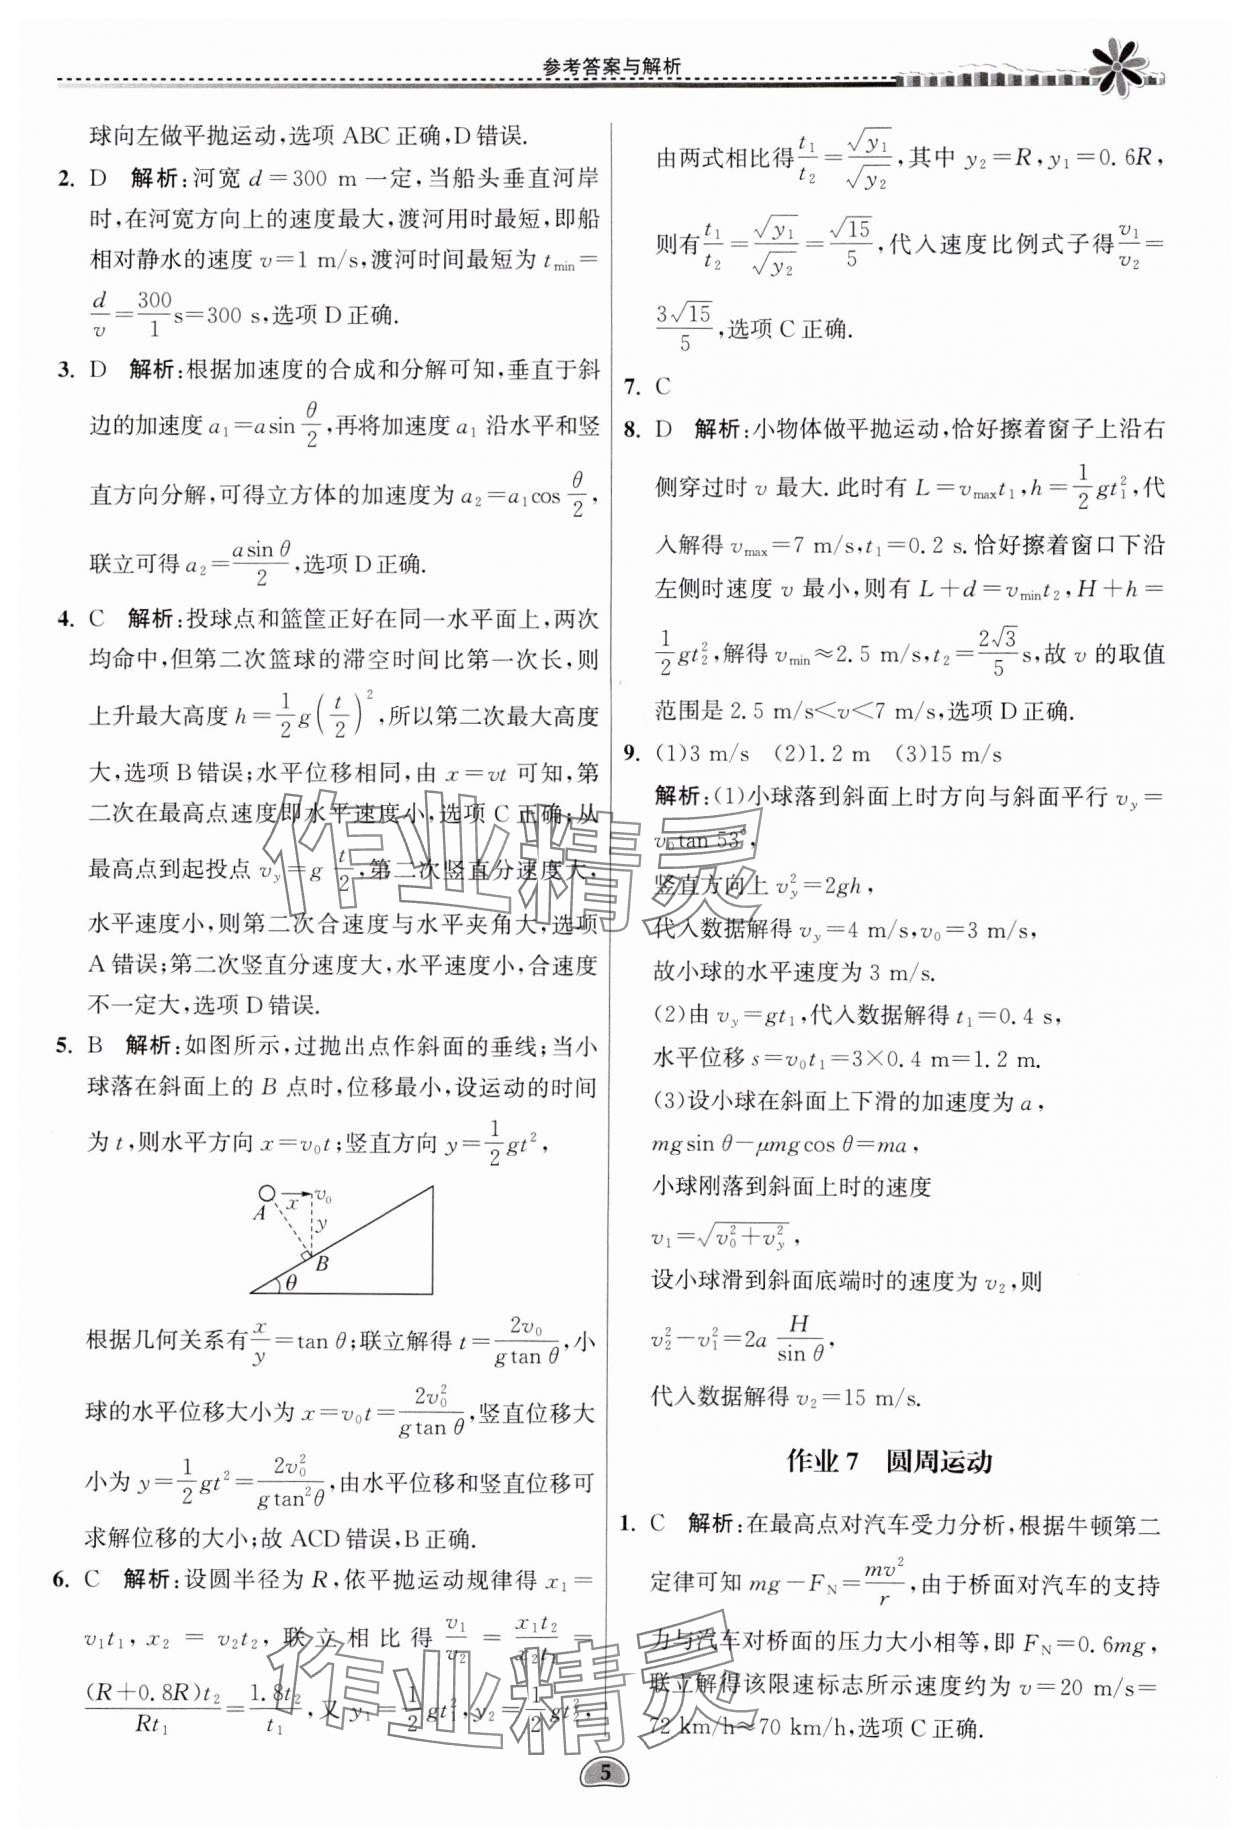 参考答案与解析
球向左做平抛运动,选项 ABC 正确,D 错误.
2. D 解析:河宽 d=300 m 一定,当船头垂直河岸
时,在河宽方向上的速度最大,渡河用时最短,即船
相对静水的速度 v=1 m/s,渡河时间最短为 t_min=
d/v=300/1 s=300 s,选项 D 正确.
3. D 解析:根据加速度的合成和分解可知,垂直于斜
边的加速度 a₁=a sin θ/2,再将加速度 a₁ 沿水平和竖
直方向分解,可得立方体的加速度为 a₂=a₁cos θ/2,
联立可得 a₂=(a sin θ)/2,选项 D 正确.
4. C 解析:投球点和篮筐正好在同一水平面上,两次
均命中,但第二次篮球的滞空时间比第一次长,则
上升最大高度 h=1/2 g(t/2)²,所以第二次最大高度
大,选项 B 错误;水平位移相同,由 x=vt 可知,第
二次在最高点速度即水平速度小,选项 C 正确;从
最高点到起投点 v_y=g t/2,第二次竖直分速度大,
水平速度小,则第二次合速度与水平夹角大,选项
A 错误;第二次竖直分速度大,水平速度小,合速度
不一定大,选项 D 错误.
5. B 解析:如图所示,过抛出点作斜面的垂线;当小
球落在斜面上的 B 点时,位移最小,设运动的时间
为 t,则水平方向 x=v₀t;竖直方向 y=1/2 gt²,
A x v₀
y
B
θ
根据几何关系有 x/y=tan θ;联立解得 t=2v₀/(g tan θ),小
球的水平位移大小为 x=v₀t=2v₀²/(g tan θ),竖直位移大
小为 y=1/2 gt²=2v₀²/(g tan²θ),由水平位移和竖直位移可
求解位移的大小;故 ACD 错误,B 正确.
6. C 解析:设圆半径为 R,依平抛运动规律得 x₁=
v₁t₁,x₂=v₂t₂,联立相比得 v₁/v₂=x₁t₂/x₂t₁=
(R+0.8R)t₂/Rt₁=1.8t₂/t₁,又 y₁=1/2 gt₁²,y₂=1/2 gt₂²,
由两式相比得 t₁/t₂=√y₁/√y₂,其中 y₂=R,y₁=0.6R,
则有 t₁/t₂=√y₁/√y₂=√15/5,代入速度比例式子得 v₁/v₂=
3√15/5,选项 C 正确.
7. C
8. D 解析:小物体做平抛运动,恰好擦着窗子上沿右
侧穿过时 v 最大. 此时有 L=v_max t₁,h=1/2 gt₁²,代
入解得 v_max=7 m/s,t₁=0.2 s.恰好擦着窗口下沿
左侧时速度 v 最小,则有 L+d=v_min t₂,H+h=
1/2 gt₂²,解得 v_min≈2.5 m/s,t₂=2√3/5 s,故 v 的取值
范围是 2.5 m/s<v<7 m/s,选项 D 正确.
9. (1)3 m/s (2)1.2 m (3)15 m/s
解析:(1)小球落到斜面上时方向与斜面平行 v_y=
v₀tan 53°,
竖直方向上 v_y²=2gh,
代入数据解得 v_y=4 m/s,v₀=3 m/s,
故小球的水平速度为 3 m/s.
(2)由 v_y=gt₁,代入数据解得 t₁=0.4 s,
水平位移 s=v₀t₁=3×0.4 m=1.2 m.
(3)设小球在斜面上下滑的加速度为 a,
mg sin θ-μmg cos θ=ma,
小球刚落到斜面上时的速度
v₁=√(v₀²+v_y²),
设小球滑到斜面底端时的速度为 v₂,则
v₂²-v₁²=2a H/sin θ,
代入数据解得 v₂=15 m/s.
作业 7 圆周运动
1. C 解析:在最高点对汽车受力分析,根据牛顿第二
定律可知 mg-F_N=mv²/r,由于桥面对汽车的支持
力与汽车对桥面的压力大小相等,即 F_N=0.6mg,
联立解得该限速标志所示速度约为 v=20 m/s=
72 km/h≈70 km/h,选项 C 正确.
5
作业精灵
作业精灵